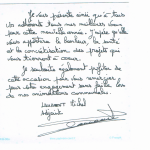 Je vous présente ainsi qu'à tous
les adhérents tous mes meilleurs vœux
pour cette nouvelle année. J'espère qu'elle
vous apportera le bonheur, la santé
et la concrétisation des projets qui
vous tiennent à cœur.
Je souhaite également profiter de
cette occasion pour vous remercier
pour votre engagement sans faille lors
de nos commémorations communales.
Laussont
Adjoint